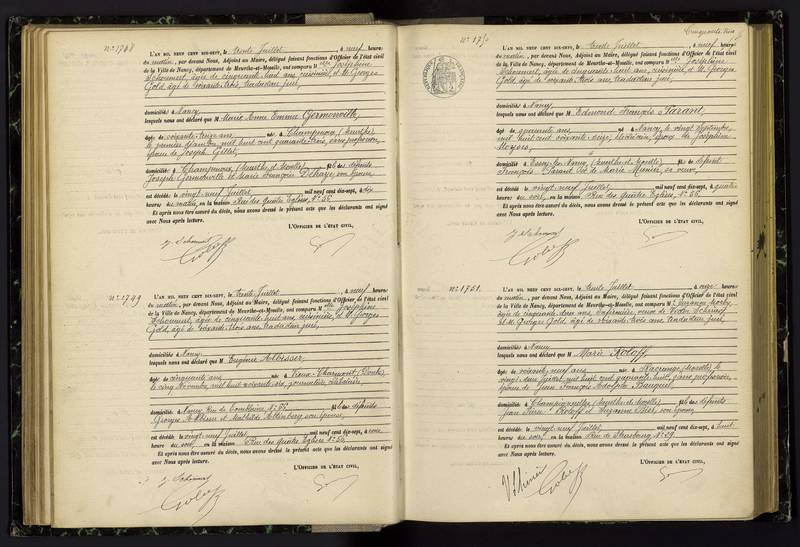 N° 1748
L'AN MIL NEUF CENT DIX-SEPT, le trente Juillet, à neuf heures
du matin, par devant Nous, Adjoint au Maire, délégué faisant fonctions d'Officier de l'état civil
de la Ville de Nancy, département de Meurthe-et-Moselle, ont comparu M elle Joséphine
Schoumert, âgée de cinquante huit ans, cuisinière, et M. Georges
Gold, âgé de soixante trois ans, traducteur juré,
domiciliés à Nancy
lesquels nous ont déclaré que M Marie Anne Emma Germonville,
âgée de soixante treize ans née à Champenoux (Meurthe)
le premier décembre mil huit cent quarante trois, sans profession,
épouse de Joseph Gillet,
domiciliée à Champenoux (Meurthe et Moselle) fille des défunts
Joseph Germonville et Marie Françoise Dehaye, son épouse,
est décédée le vingt neuf Juillet mil neuf cent dix-sept, à dix
heures du matin, en la maison Rue des Quatre Eglises, N° 56.
Et après nous être assuré du décès, nous avons dressé le présent acte que les déclarants ont signé
avec Nous après lecture.
L'OFFICIER DE L'ÉTAT CIVIL,
J. Schoumert
Gold
N° 1749
L'AN MIL NEUF CENT DIX-SEPT, le trente Juillet, à neuf heures
du matin, par devant Nous, Adjoint au Maire, délégué faisant fonctions d'Officier de l'état civil
de la Ville de Nancy, département de Meurthe-et-Moselle, ont comparu M elle Joséphine
Schoumert, âgée de cinquante huit ans, cuisinière, et M. Georges
Gold, âgé de soixante trois ans, traducteur juré,
domiciliés à Nancy
lesquels nous ont déclaré que M Eugénie Albisser,
âgée de cinquante ans née à Vieux-Charmont (Doubs)
le cinq Novembre mil huit cent soixante six, journalière, célibataire,
domiciliée à Nancy, Rue de N° 86, fille des défunts
Georges Albisser et Mathilde son épouse,
est décédée le vingt neuf Juillet mil neuf cent dix-sept, à onze
heures du soir, en la maison Rue des Quatre Eglises N° 56
Et après nous être assuré du décès, nous avons dressé le présent acte que les déclarants ont signé
avec Nous après lecture.
L'OFFICIER DE L'ÉTAT CIVIL,
J. Schoumert
Gold
Cinquante trois
N° 1750
L'AN MIL NEUF CENT DIX-SEPT, le trente Juillet, à neuf heures
du matin, par devant Nous, Adjoint au Maire, délégué faisant fonctions d'Officier de l'état civil
de la Ville de Nancy, département de Meurthe-et-Moselle, ont comparu M elle Joséphine
Schoumert, âgée de cinquante huit ans, cuisinière, et M. Georges
Gold, âgé de soixante trois ans, traducteur juré,
domiciliés à Nancy
lesquels nous ont déclaré que M Edmond François Parant,
âgé de quarante ans né à Nancy, le vingt Septembre
mil huit cent soixante seize, époux de Joséphine
domicilié à Essey-les-Nancy (Meurthe et Moselle) fils de défunt
François Parant et de Marie Meunier, sa veuve,
est décédé le vingt neuf Juillet mil neuf cent dix-sept, à quatre
heures du soir, en la maison Rue des Quatre Eglises, N° 56.
Et après nous être assuré du décès, nous avons dressé le présent acte que les déclarants ont signé
avec Nous après lecture.
L'OFFICIER DE L'ÉTAT CIVIL,
J. Schoumert
Gold
N° 1751.
L'AN MIL NEUF CENT DIX-SEPT, le trente Juillet, à onze heures
du matin, par devant Nous, Adjoint au Maire, délégué faisant fonctions d'Officier de l'état civil
de la Ville de Nancy, département de Meurthe-et-Moselle, ont comparu M
âgée de cinquante deux ans, infirmière, veuve de Victor
et M. Georges Gold, âgé de soixante trois ans, traducteur juré,
domiciliés à Nancy
lesquels nous ont déclaré que M Marie Roloff,
âgée de soixante neuf ans née à (Moselle) le
vingt deux mil huit cent quarante huit, sans profession,
épouse de Jean François Adolphe
domiciliée à Champigneulles (Meurthe et Moselle) fille des défunts
Jean Pierre Roloff et Suzanne son épouse,
est décédée le vingt neuf Juillet mil neuf cent dix-sept, à huit
heures du soir, en la maison Rue de Strasbourg N° 29.
Et après nous être assuré du décès, nous avons dressé le présent acte que les déclarants ont signé
avec Nous après lecture.
L'OFFICIER DE L'ÉTAT CIVIL,
Gold